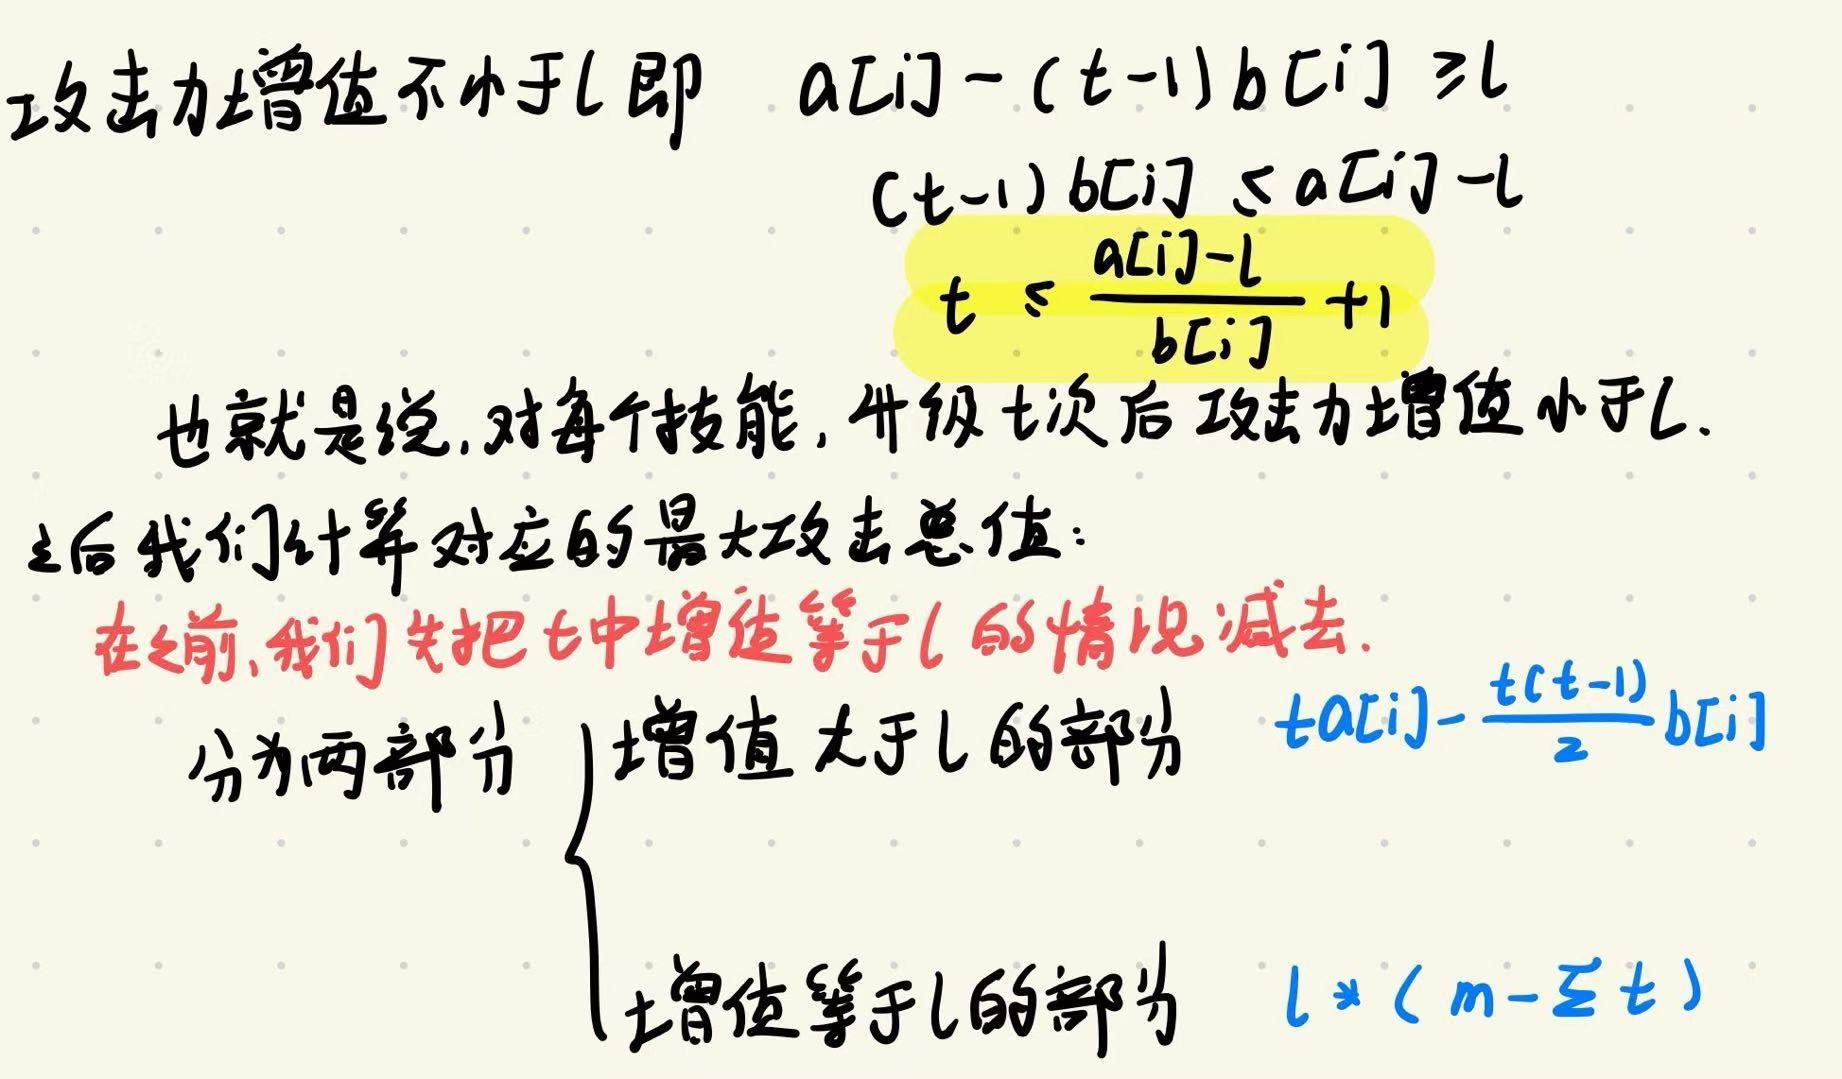 攻击力增值不小于l即 a[i]-(t-1)b[i]≥l
(t-1)b[i]≤a[i]-l
t≤\frac{a[i]-l}{b[i]}+1
也就是说,对每个技能,升级t次后攻击力增值小于l.
之后我们计算对应的最大攻击总值:
在之前,我们先把t中增值等于l的情况减去.
分为两部分 { 增值大于l的部分 ta[i]-\frac{t(t-1)}{2}b[i]
增值等于l的部分 l*(m-Σt)